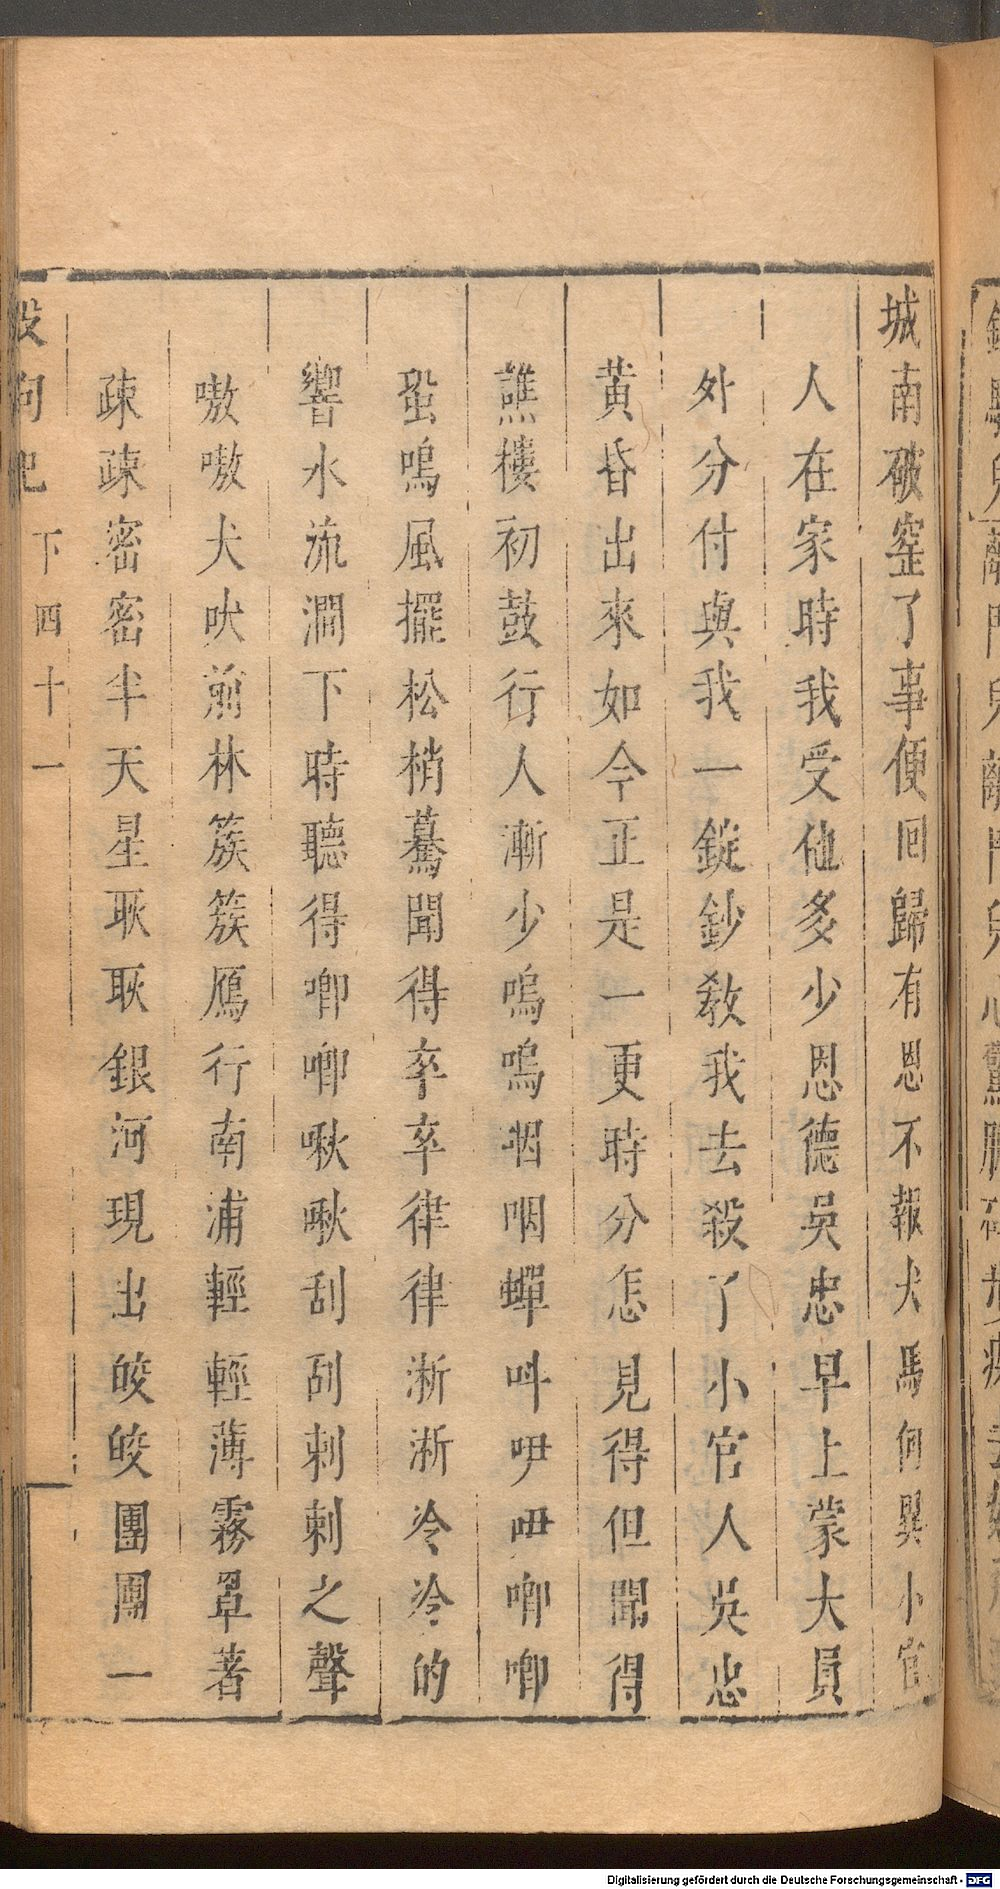 城南破窰了事便囘歸有恩不報犬馬何異小官
人在家時我受他多少恩德吳忠早上蒙大員
外分付與我一錠鈔敎我去殺了小官人吳忠
黃昏出來如今正是一更時分怎見得但聞得
譙樓初鼓行人漸少嗚嗚咽咽蟬吽吚吚唧唧
蛩鳴風擺松梢驀聞得卒卒律律淅淅冷冷的
響水流澗下時聽得唧唧啾啾刮刮刺刺之聲
嗷嗷犬吠前林簇簇雁行南浦輕輕薄霧罩著
疎疎密密半天星耿耿銀河現出皎皎團團一
殺狗記 下 四十一
Digitalisierung gefördert durch die Deutsche Forschungsgemeinschaft - DFG